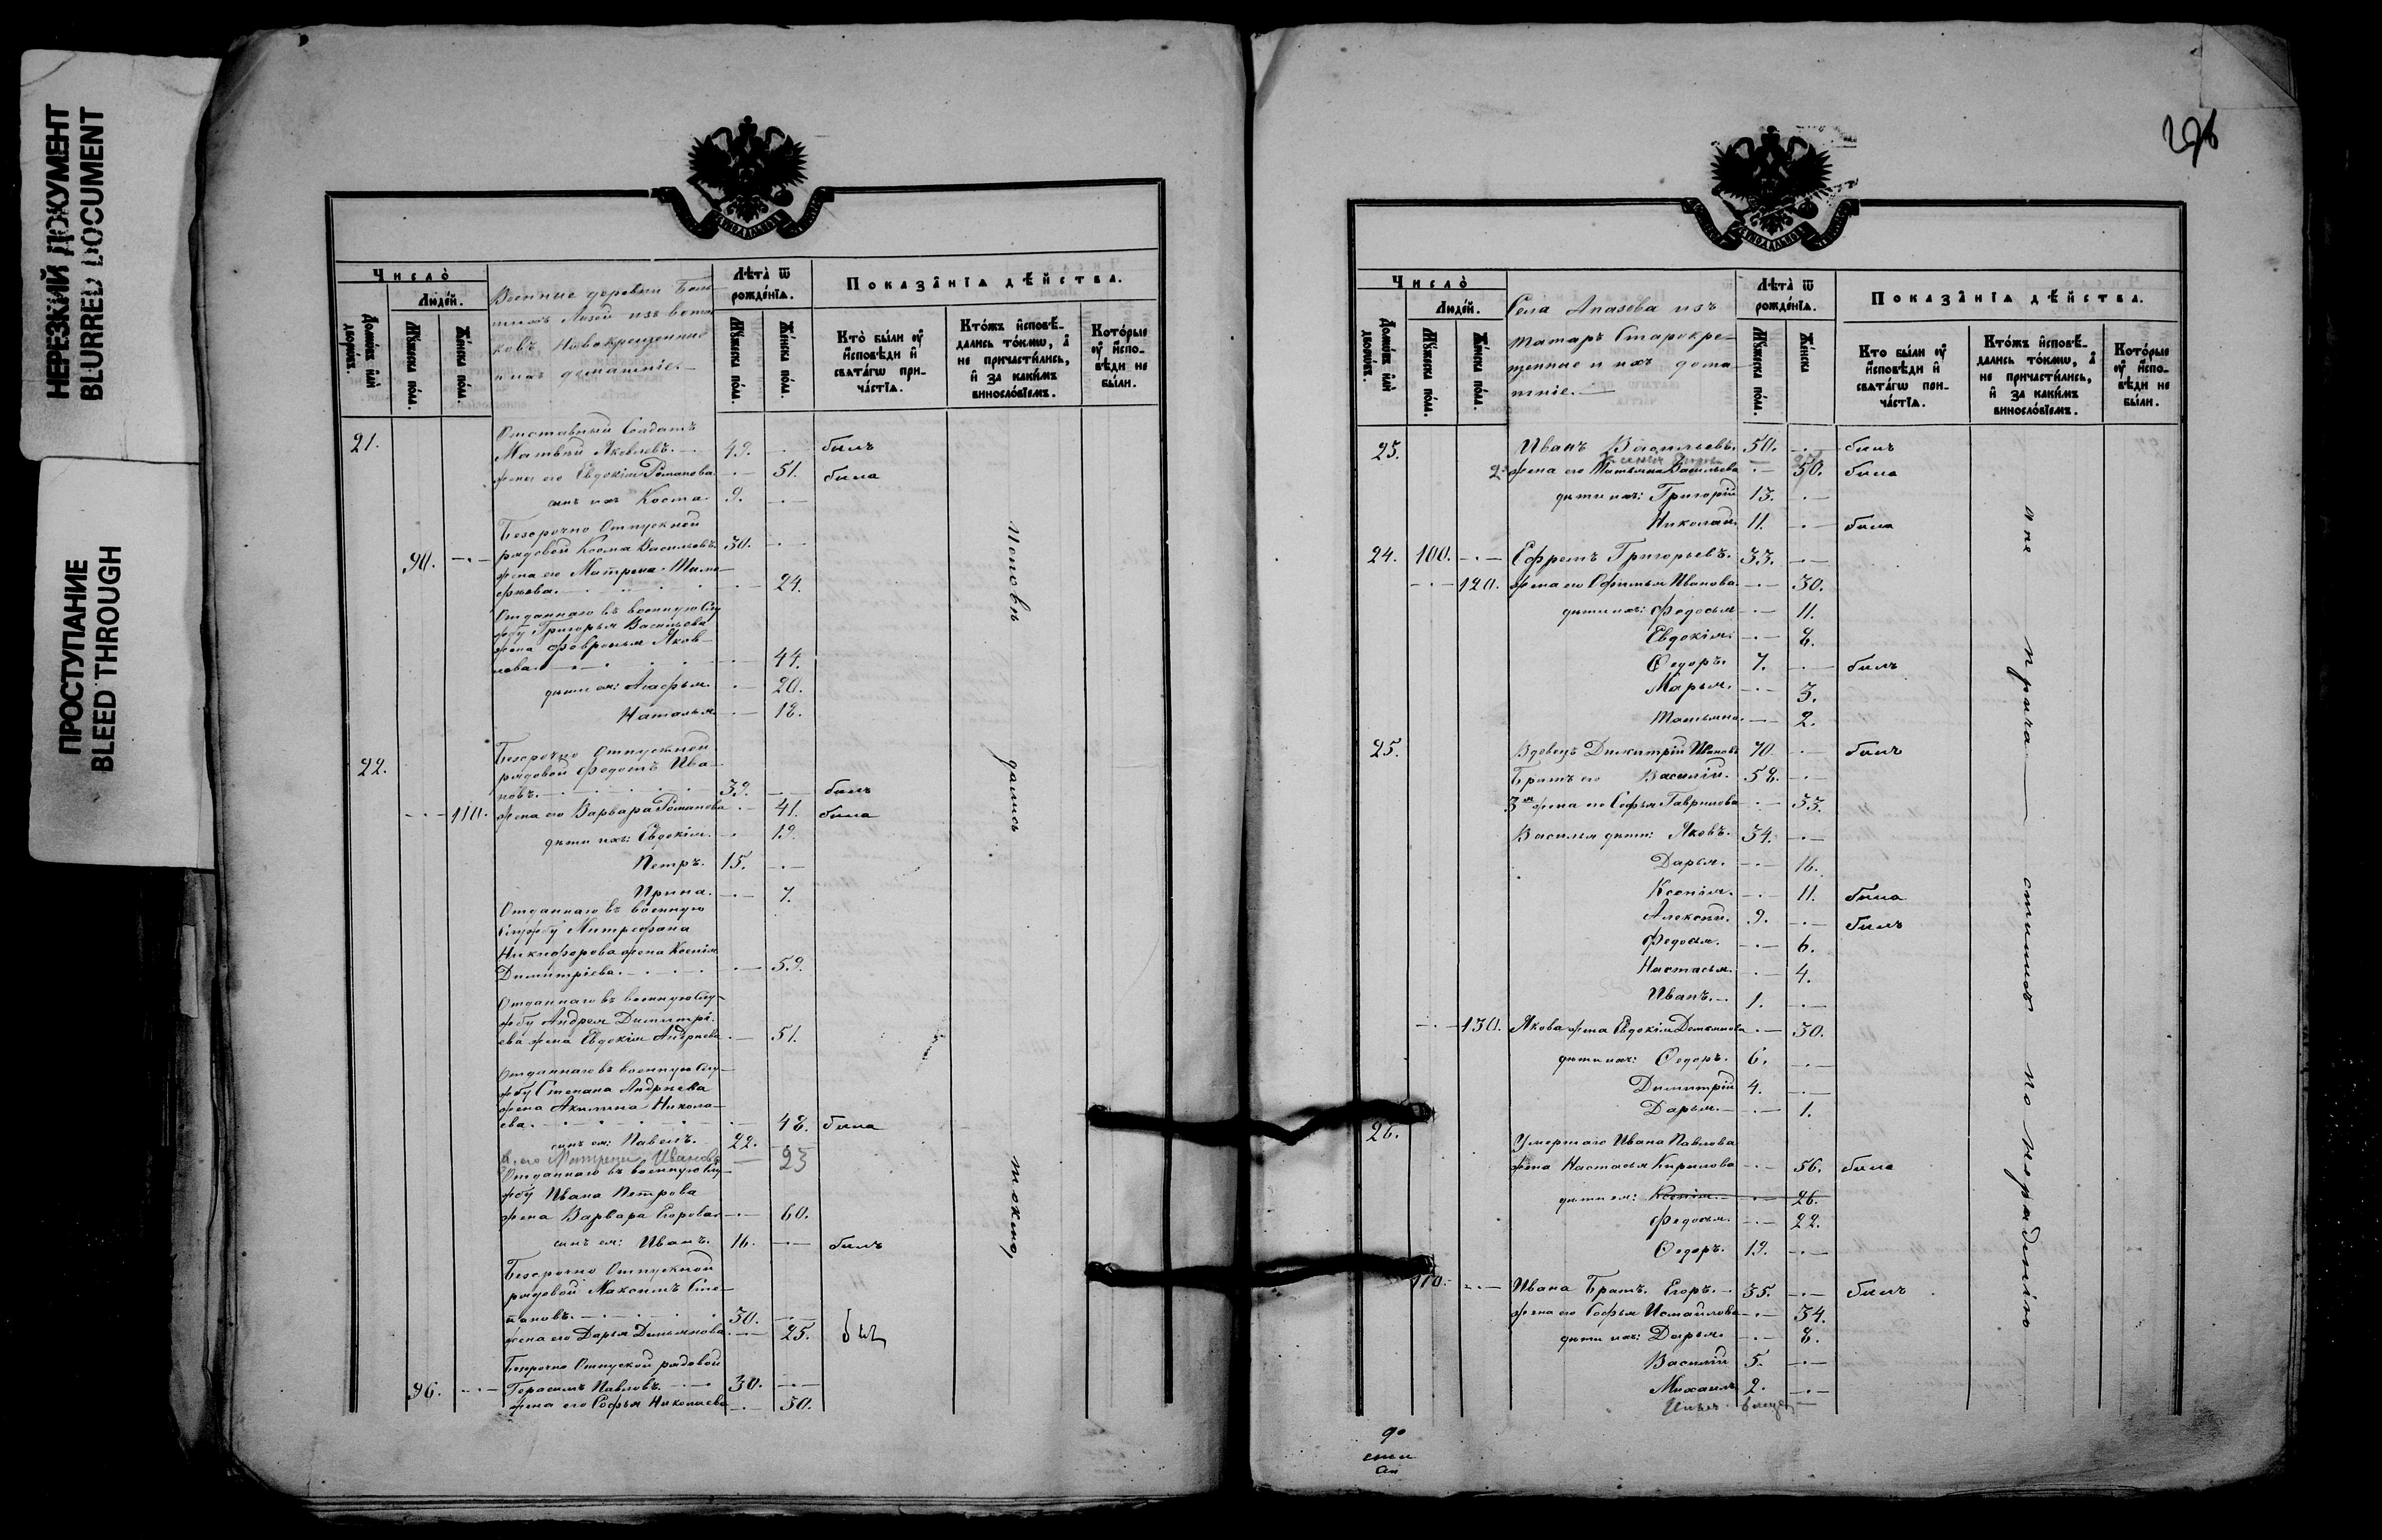 НЕРЕЗКИЙ ДОКУМЕНТ
BLURRED DOCUMENT
ПРОСТУПАНИЕ
BLEED THROUGH
Число̀
Людей.
Домѡвъ или дворѡвъ.
Мꙋжеска пола.
Женска пола.
Военные деревни
из вотя
ковъ Новокрещенные
и ихъ домашніе.
Лѣта ѿ рожденїѧ.
Мꙋжеска пола.
Женска пола.
Показанїѧ дѣйства.
Кто были оу исповѣди и свѧтагѡ причастїѧ.
Ктожъ исповѣдались токмѡ, а не причастились, и за какимъ винословїемъ.
Которые оу исповѣди не были.
21. Отставный Солдатъ
Матвѣй Яковлевъ. 49. былъ
жена его Евдокія Романова 51. была
сынъ ихъ Косма. 9.
Безсрочно Отпускной
90. рядовой Косма Васильевъ. 30.
жена его Матрена Тимо
ѳеева. 24.
Отданнаго въ военную Слу
жбу Григорья Васильева
жена Февронья Яков
лева. 44.
дѣти ея: Агафья. 20.
Наталья. 18.
22. Безсрочно Отпускной
рядовой Федотъ Ива
новъ. 39. былъ
110. жена его Варвара Романова 41. была
дѣти ихъ: Евдокія. 19.
Петръ. 15.
Ирина. 7.
Отданнаго въ военную
Службу Митрофана
Никифорова жена Ксенія
Димитріева. 59.
Отданнаго въ военную Слу
жбу Андрея Димитрі
ева жена Евдокія Андреева 51.
Отданнаго въ военную Слу
жбу Степана Андреева
жена Акилина Никола
ева. 48. была
сынъ ея: Павелъ. 22.
ж. его Матрена Иванова 23
Отданнаго въ военную Слу
жбу Ивана Петрова
жена Варвара Егорова 60.
сынъ ея: Иванъ. 16. былъ
Безсрочно Отпускной
рядовой Максимъ Сте
пановъ. 30.
жена его Дарья Демьянова 25. был
Безсрочно Отпуской рядовой
96. Герасимъ Павловъ. 30.
жена его Софья Николаева 30.
исповѣ дались токмо,
296
Число̀
Людей.
Домѡвъ или дворѡвъ.
Мꙋжеска пола.
Женска пола.
Села Апазева изъ
татаръ Старокре
щенные и ихъ дома
шніе.
Лѣта ѿ рожденїѧ.
Мꙋжеска пола.
Женска
Показанїѧ дѣйства.
Кто были оу исповѣди и свѧтагѡ причастїѧ.
Ктожъ исповѣдались токмѡ, а не причастились, и за какимъ винословїемъ.
Которые оу исповѣди не были.
23. Иванъ Васильевъ. 50. былъ
2 жена его Татьяна Васильева 50. была
дѣти ихъ: Григорій 13.
Николай. 11. была
24. 100. Ефремъ Григорьевъ. 33.
120. жена его Офимья Иванова 30.
дѣти ихъ: Федосья 11.
Евдокія. 8.
Ѳедоръ. 7. былъ
Марья. 3.
Татьяна. 2.
25. Вдовецъ Димитрій Ивановъ 70. былъ
Братъ его Василій. 58.
3я жена его Софья Гаврилова 33.
Василья дѣти: Яковъ. 34.
Дарья. 16.
Ксенія. 11. была
Алексѣй. 9. былъ
Федосья. 6.
Настасья. 4.
Иванъ. 1.
130. Якова жена Евдокія Демьянова 30.
дѣти ихъ: Ѳедоръ. 6.
Димитрій 4.
Дарья. 1.
26. Умершаго Ивана Павлова
жена Настасья Кирилова 56. была
дѣти ея: Ксенія. 26.
Федосья. 22.
Ѳедоръ. 19.
110. Ивана Братъ Егоръ. 35. былъ
жена его Софья Исмаилова 34.
дѣти ихъ: Дарья. 8.
Василій 5.
Михаилъ 2.
а не прича стились по нерадѣнію